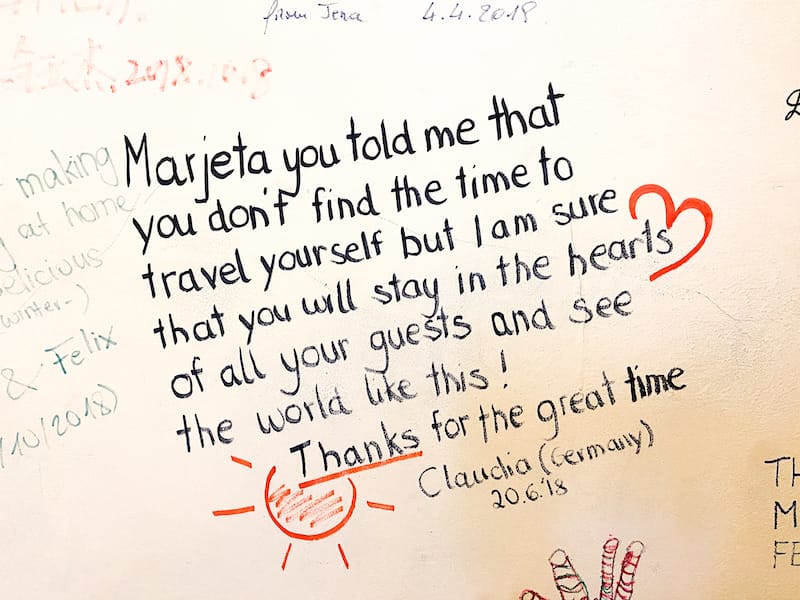 from Jena 4.4.2018
2018.10.3
making
at home
delicious
winter-)
& Felix
/10/2018)
Marjeta you told me that
you don't find the time to
travel yourself but I am sure
that you will stay in the hearts
of all your guests and see
the world like this!
Thanks for the great time
Claudia (Germany)
20.6.'18
TH
M
FE